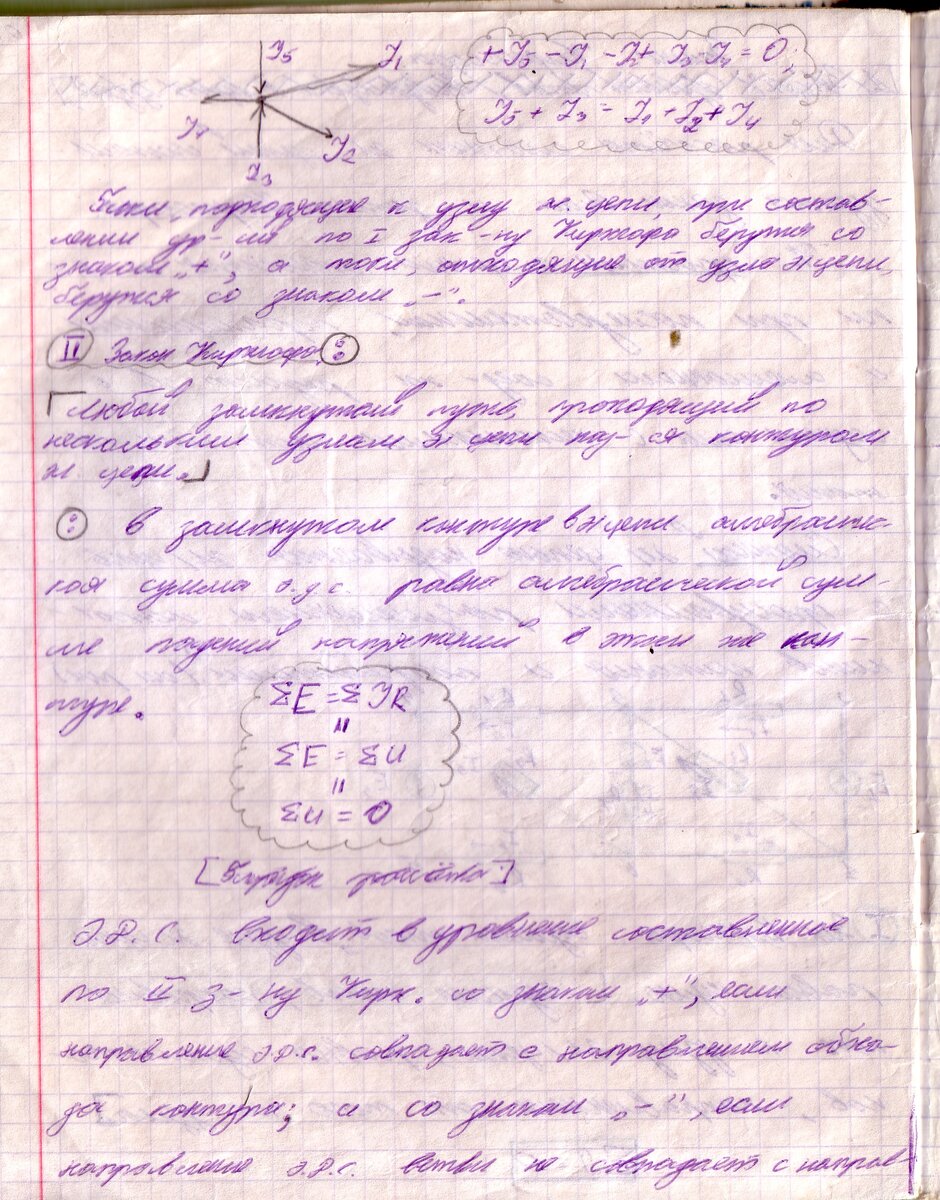 I5
I1
+I5 - I1 - I2 + I3 - I4 = 0;
I4
I2
I3
I5 + I3 = I1 + I2 + I4
Токи, подходящие к узлу эл. цепи, при состав-
лении ур-ий по I зак-ну Кирхгофа берутся со
знаком „+", а токи, отходящие от узла эл цепи,
берутся со знаком „-".
II Закон Кирхгофа:
Любой замкнутый путь, проходящий по
нескольким узлам эл цепи наз-ся контуром
эл. цепи.
: В замкнутом контуре эл цепи алгебраичес-
кая сумма э.д.с. равна алгебраической сум-
ме падений напряжений в этом же кон-
туре.
ΣE = Σ IR
"
ΣE = ΣU
"
ΣU = 0
[ ]
Э.Д.С. входит в уровнение составленное
по II з-ну Кирх. со знаком „+", если
направление Э.Д.С. совпадает с направлением обхо-
да контура; а со знаком „-", если
направление Э.Д.С. ветви не совпадает с направ-